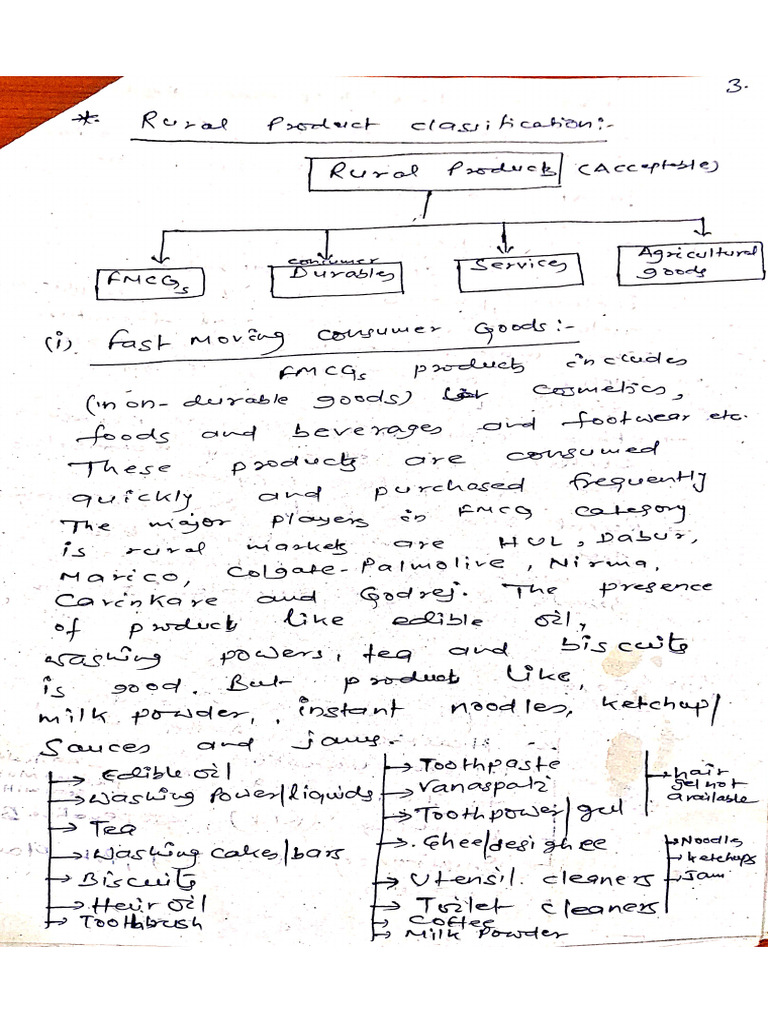 3.
*. Rural Product classification:-
Rural Products (Acceptable)
FMCGs
consumer
Durables
Services
Agricultural
goods
(i) Fast Moving Consumer Goods:-
FMCGs products includes
(non-durable goods) cosmetics,
foods and beverages and footwear etc.
These products are consumed
quickly and purchased frequently
The major players in FMCG category
is rural markets are HUL, Dabur,
Marico, Colgate-Palmolive, Nirma,
Carinkare and Godrej. The presence
of products like edible oil,
washing powers, tea and biscuits
is good. But products like,
milk powder, instant noodles, ketchup/
Sauces and jams.
Edible oil
Washing Power/liquids
Tea
Washing cakes/bars
Biscuits
Hair oil
Toothbrush
Toothpaste
Vanaspati
Toothpower/gul
Ghee/desighee
Utensil. cleaners
Toilet cleaners
Coffee
Milk Powder
hair
gel not
available
Noodles
ketchups
Jam